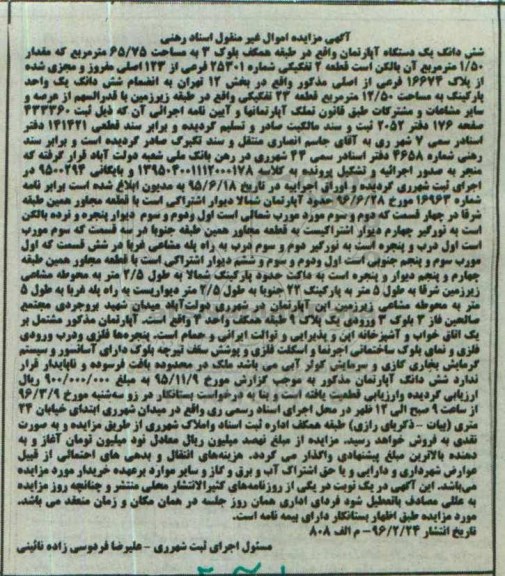 آگهی مزایده اموال غیر منقول اسناد رهنی
شش دانگ یک دستگاه آپارتمان واقع در طبقه همکف بلوک ۳ به مساحت ۶۵/۷۵ مترمربع که مقدار
۱/۵۰ مترمربع آن بالکن است قطعه ۲ تفکیکی شماره ۲۵۳۰۱ فرعی از ۱۲۳ اصلی مفروز و مجزی شده
از پلاک ۱۶۶۷۴ فرعی از اصلی مذکور واقع در بخش ۱۲ تهران به انضمام شش دانگ یک واحد
پارکینگ به مساحت ۱۲/۵۰ مترمربع قطعه ۲۳ تفکیکی واقع در طبقه زیرزمین با قدرالسهم از عرصه و
سایر مشاعات و مشترکات طبق قانون تملک آپارتمانها و آیین نامه اجرائی آن که ذیل ثبت ۴۳۳۳۶۰
صفحه ۱۷۶ دفتر ۲۰۵۲ ثبت و سند مالکیت صادر و تسلیم گردیده و برابر سند قطعی ۱۴۱۴۲۱ دفتر
اسنادر سمی ۷ شهر ری به آقای جاسم انصاری منتقل و سند تکبرگ صادر گردیده است و برابر سند
رهنی شماره ۴۶۵۸ دفتر اسنادر سمی ۴۴ شهرری در رهن بانک ملی شعبه دولت آباد قرار گرفته که
منجر به صدور اجرائیه و تشکیل پرونده به کلاسه ۱۳۹۵۰۴۰۰۱۱۱۲۰۰۰۱۷۸ و بایگانی ۹۵۰۰۲۹۴ در
اجرای ثبت شهرری گردیده و اوراق اجراییه در تاریخ ۹۵/۶/۱۸ به مدیون ابلاغ شده است برابر نامه
شماره ۱۶۹۶۳ مورخ ۹۶/۶/۲۸ حدود آپارتمان شمالا دیوار اشتراکی است با قطعه مجاور همین طبقه
شرقا در چهار قسمت که دوم و سوم مورد مورب شمالی است اول ودوم و سوم دیوار پنجره و نرده بالکن
است به نورگیر چهارم دیوار اشتراکیست به قطعه مجاور همین طبقه جنوبا در سه قسمت که سوم مورب
است اول درب و پنجره است به نورگیر دوم و سوم درب به راه پله مشاعی غربا در شش قسمت که اول
مورب سوم و پنجم جنوبی است اول ودوم و سوم و ششم دیوار اشتراکی است با قطعه مجاور همین طبقه
چهارم و پنجم دیوار و پنجره است به داکت حدود پارکینگ شمالا به طول ۲/۵ متر به محوطه مشاعی
زیرزمین شرقا به طول ۵ متر به پارکینگ ۲۲ جنوبا به طول ۲/۵ متر دیواریست به راه پله غربا به طول ۵
متر به محوطه مشاعی زیرزمین این آپارتمان در شهرری دولت‌آباد میدان شهید بروجردی مجتمع
صالحین فاز ۲ بلوک ۳ ورودی یک پلاک ۹ طبقه همکف واحد ۳ واقع است. آپارتمان مذکور مشتمل بر
یک اتاق خواب و آشپزخانه اپن و پذیرایی و توالت ایرانی و حمام است. پنجره‌ها فلزی ودرب ورودی
فلزی و نمای بلوک ساختمانی اجرنما و اسکلت فلزی و پوشش سقف تیرچه بلوک دارای آسانسور و سیستم
گرمایش بخاری گازی و سرمایش کولر آبی می باشد ملک در محدوده بافت فرسوده و ناپایدار قرار
ندارد شش دانگ آپارتمان مذکور به موجب گزارش مورخ ۹۵/۱۱/۹ به مبلغ ۹۰۰/۰۰۰/۰۰۰ ریال
ارزیابی گردیده وارزیابی قطعیت یافته است و بنا به درخواست بستانکار در رو سه‌شنبه مورخ ۹۶/۳/۹
از ساعت ۹ صبح الی ۱۲ ظهر در محل اجرای اسناد رسمی ری واقع در میدان شهرری ابتدای خیابان ۲۴
متری (بیات – ذکریای رازی) طبقه همکف اداره ثبت اسناد واملاک شهرری از طریق مزایده و به صورت
نقدی به فروش خواهد رسید. مزایده از مبلغ نهصد میلیون ریال معادل نود میلیون تومان آغاز و به
دهنده بالاترین مبلغ پیشنهادی واگذار می گردد. هزینه‌های انتقال و بدهی های احتمالی از قبیل
عوارض شهرداری و دارایی و یا حق اشتراک آب و برق و گاز و سایر موارد برعهده خریدار مورد مزایده
می‌باشد. این آگهی در یک نوبت در یکی از روزنامه‌های کثیرالانتشار محلی منتشر و چنانچه روز مزایده
به عللی مصادف باتعطیل شود فردای اداری همان روز جلسه در همان مکان و زمان منعقد می باشد.
مورد مزایده طبق اظهار بستانکار دارای بیمه نامه است.
تاریخ انتشار ۹۶/۲/۲۴- م الف ۸۰۸
مسئول اجرای ثبت شهرری – علیرضا فردوسی زاده نائینی